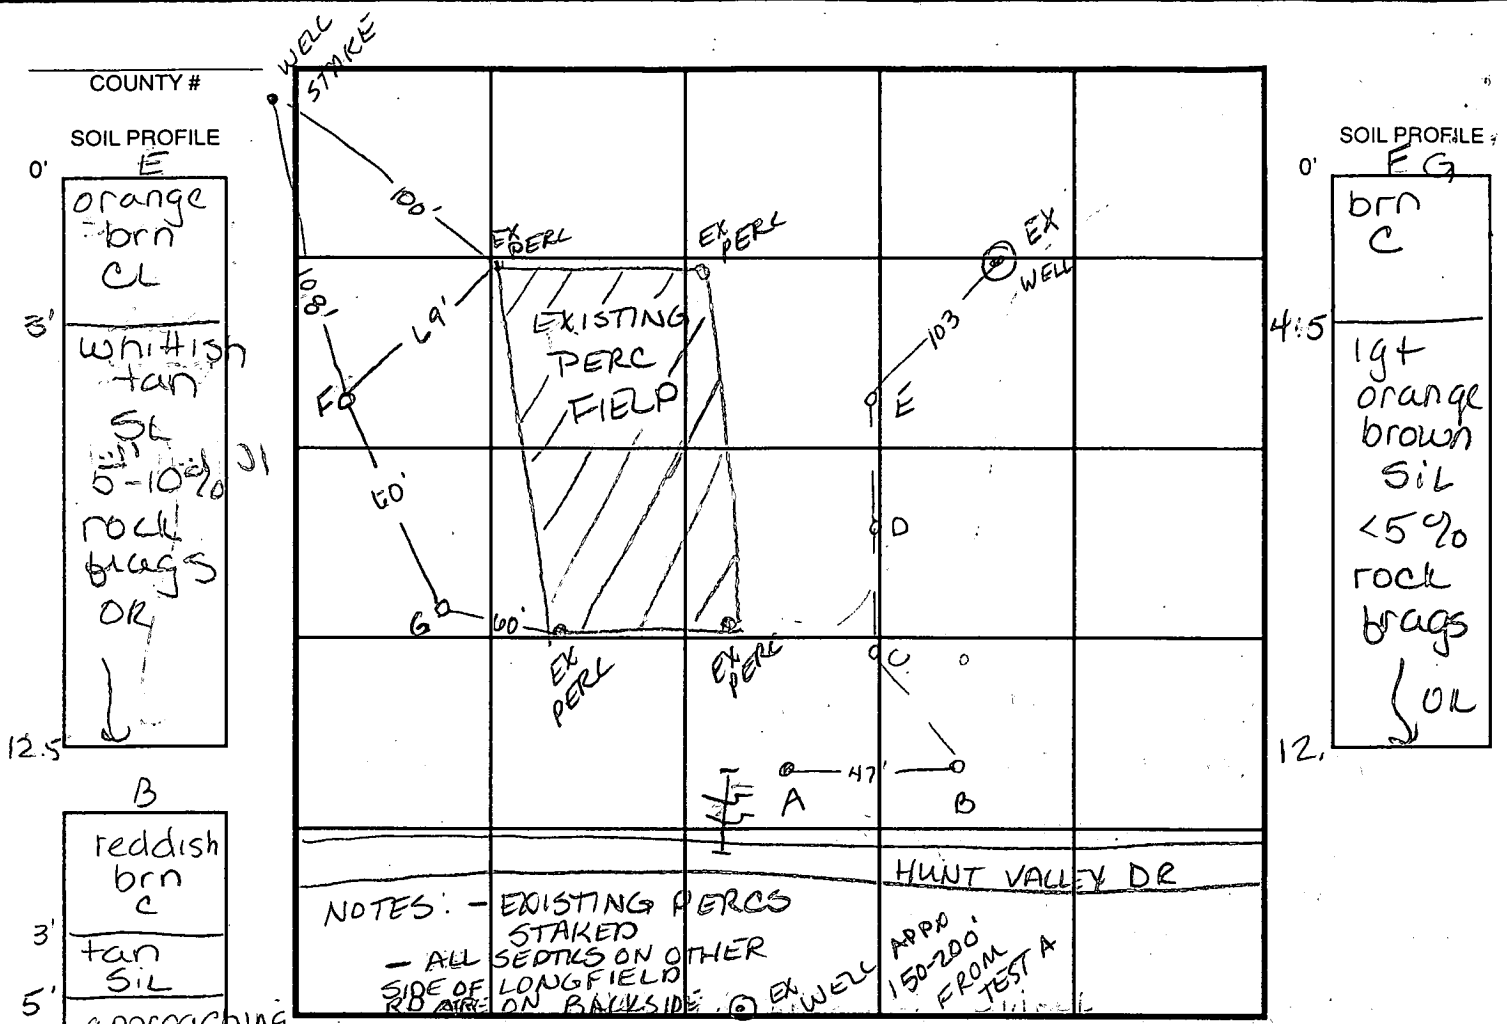 COUNTY #
SOIL PROFILE
E
0'
orange
brn
CL
3'
whitish
tan
SL
5-10%
rock
frags
OK
12.5
B
reddish
brn
C
3'
tan
SiL
5'
approaching
WELL
STAKE
100'
EX
PERC
EX
PERC
EX
WELL
108'
69'
EXISTING
PERC
FIELD
103
F
E
60'
D
G
60'
C
EX
PERC
EX
PERC
A
47'
B
HUNT VALLEY DR
NOTES: - EXISTING PERCS
STAKED
- ALL SEPTICS ON OTHER
SIDE OF LONGFIELD
RD ARE ON BACKSIDE
EX
WELL APPX
150-200'
FROM
TEST A
SOIL PROFILE
F G
0'
brn
C
4.5
lgt
orange
brown
SiL
<5%
rock
frags
OK
12.